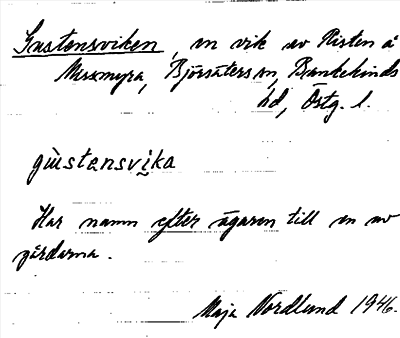 Gustensviken, en vik av Risten å
Mossmyra, Björsäters sn, Bankekinds
hd, Östg. l.
gùstensvi̬ka
Har namn efter ägaren till en av
gårdarna.
Maja Nordlund 1946.